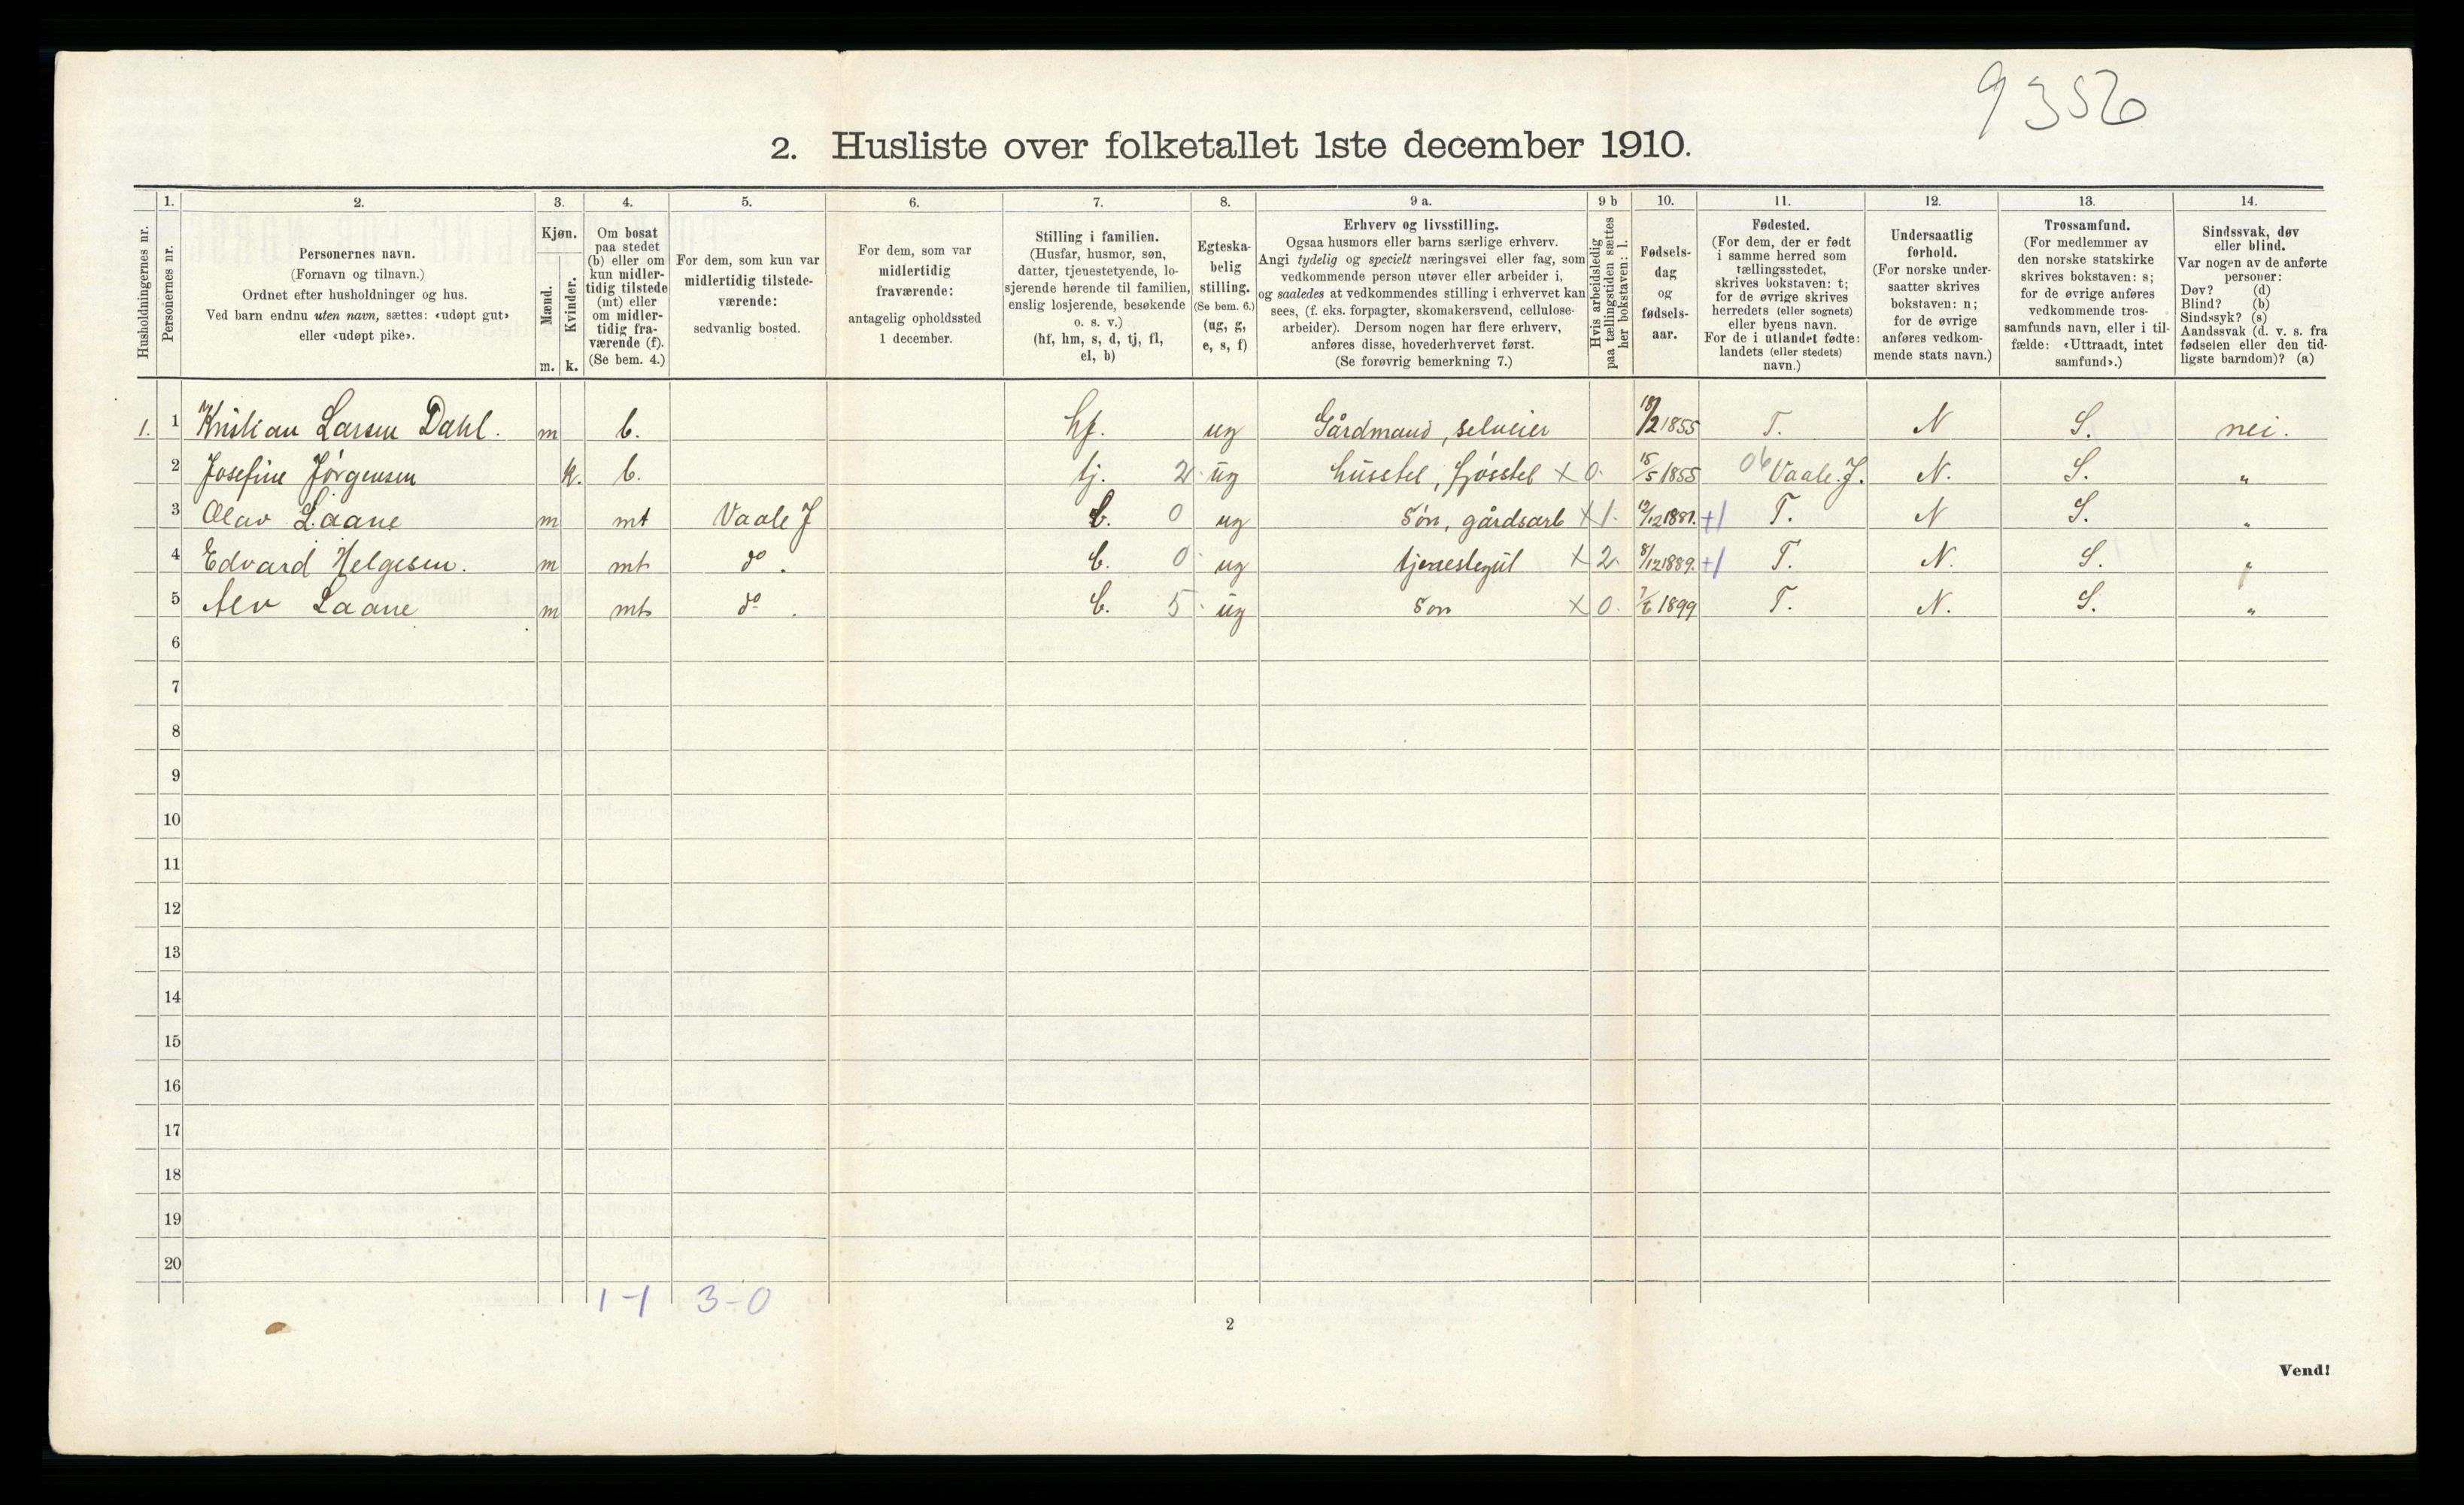 9356
2. Husliste over folketallet 1ste december 1910.
1. 2. 3. 4. 5. 6. 7. 8. 9 a. 9 b 10. 11. 12. 13. 14.
Husholdningernes nr.
Personernes nr.
Personernes navn.
(Fornavn og tilnavn.)
Ordnet efter husholdninger og hus.
Ved barn endnu uten navn, sættes: «udøpt gut»
eller «udøpt pike».
Kjøn.
Mænd.
Kvinder.
m. k.
Om bosat
paa stedet
(b) eller om
kun midler-
tidig tilstede
(mt) eller
om midler-
tidig fra-
værende (f).
(Se bem. 4.)
For dem, som kun var
midlertidig tilstede-
værende:
sedvanlig bosted.
For dem, som var
midlertidig
fraværende:
antagelig opholdssted
1 december.
Stilling i familien.
(Husfar, husmor, søn,
datter, tjenestetyende, lo-
sjerende hørende til familien,
enslig losjerende, besøkende
o. s. v.)
(hf, hm, s, d, tj, fl,
el, b)
Egteska-
belig
stilling.
(Se bem. 6.)
(ug, g,
e, s, f)
Erhverv og livsstilling.
Ogsaa husmors eller barns særlige erhverv.
Angi tydelig og specielt næringsvei eller fag, som
vedkommende person utøver eller arbeider i,
og saaledes at vedkommendes stilling i erhvervet kan
sees, (f. eks. forpagter, skomakersvend, cellulose-
arbeider). Dersom nogen har flere erhverv,
anføres disse, hovederhvervet først.
(Se forøvrig bemerkning 7.)
Hvis arbeidsledig
paa tællingstiden sættes
her bokstaven: l.
Fødsels-
dag
og
fødsels-
aar.
Fødested.
(For dem, der er født
i samme herred som
tællingsstedet,
skrives bokstaven: t;
for de øvrige skrives
herredets (eller sognets)
eller byens navn.
For de i utlandet fødte:
landets (eller stedets)
navn.)
Undersaatlig
forhold.
(For norske under-
saatter skrives
bokstaven: n;
for de øvrige
anføres vedkom-
mende stats navn.)
Trossamfund.
(For medlemmer av
den norske statskirke
skrives bokstaven: s;
for de øvrige anføres
vedkommende tros-
samfunds navn, eller i til-
fælde: «Uttraadt, intet
samfund».)
Sindssvak, døv
eller blind.
Var nogen av de anførte
personer:
Døv? (d)
Blind? (b)
Sindssyk? (s)
Aandssvak (d. v. s. fra
fødselen eller den tid-
ligste barndom)? (a)
1. 1 Kristian Larsen Dahl. m b. hf. ug Gårdmand, selveier 18/2 1855 T. N S. nei.
2 Josefine Jørgensen k. b. tj. 2 ug husstel, fjøsstel x 0. 15/5 1855 06 Vaale. J. N. S. "
3 Olav Laane m mt Vaale J b. 0 ug Søn, gårdsarb x 1. 12/12 1881. +1 T. N S. "
4 Edvard Helgesen. m mt do. b. 0 ug tjenestegut x 2. 8/12 1889. +1 T. N. S. "
5 Alv Laane m mt do. b. 5 ug Søn x 0. 7/6 1899 T. N. S. "
6
7
8
9
10
11
12
13
14
15
16
17
18
19
20
1-1 3-0
2
Vend!